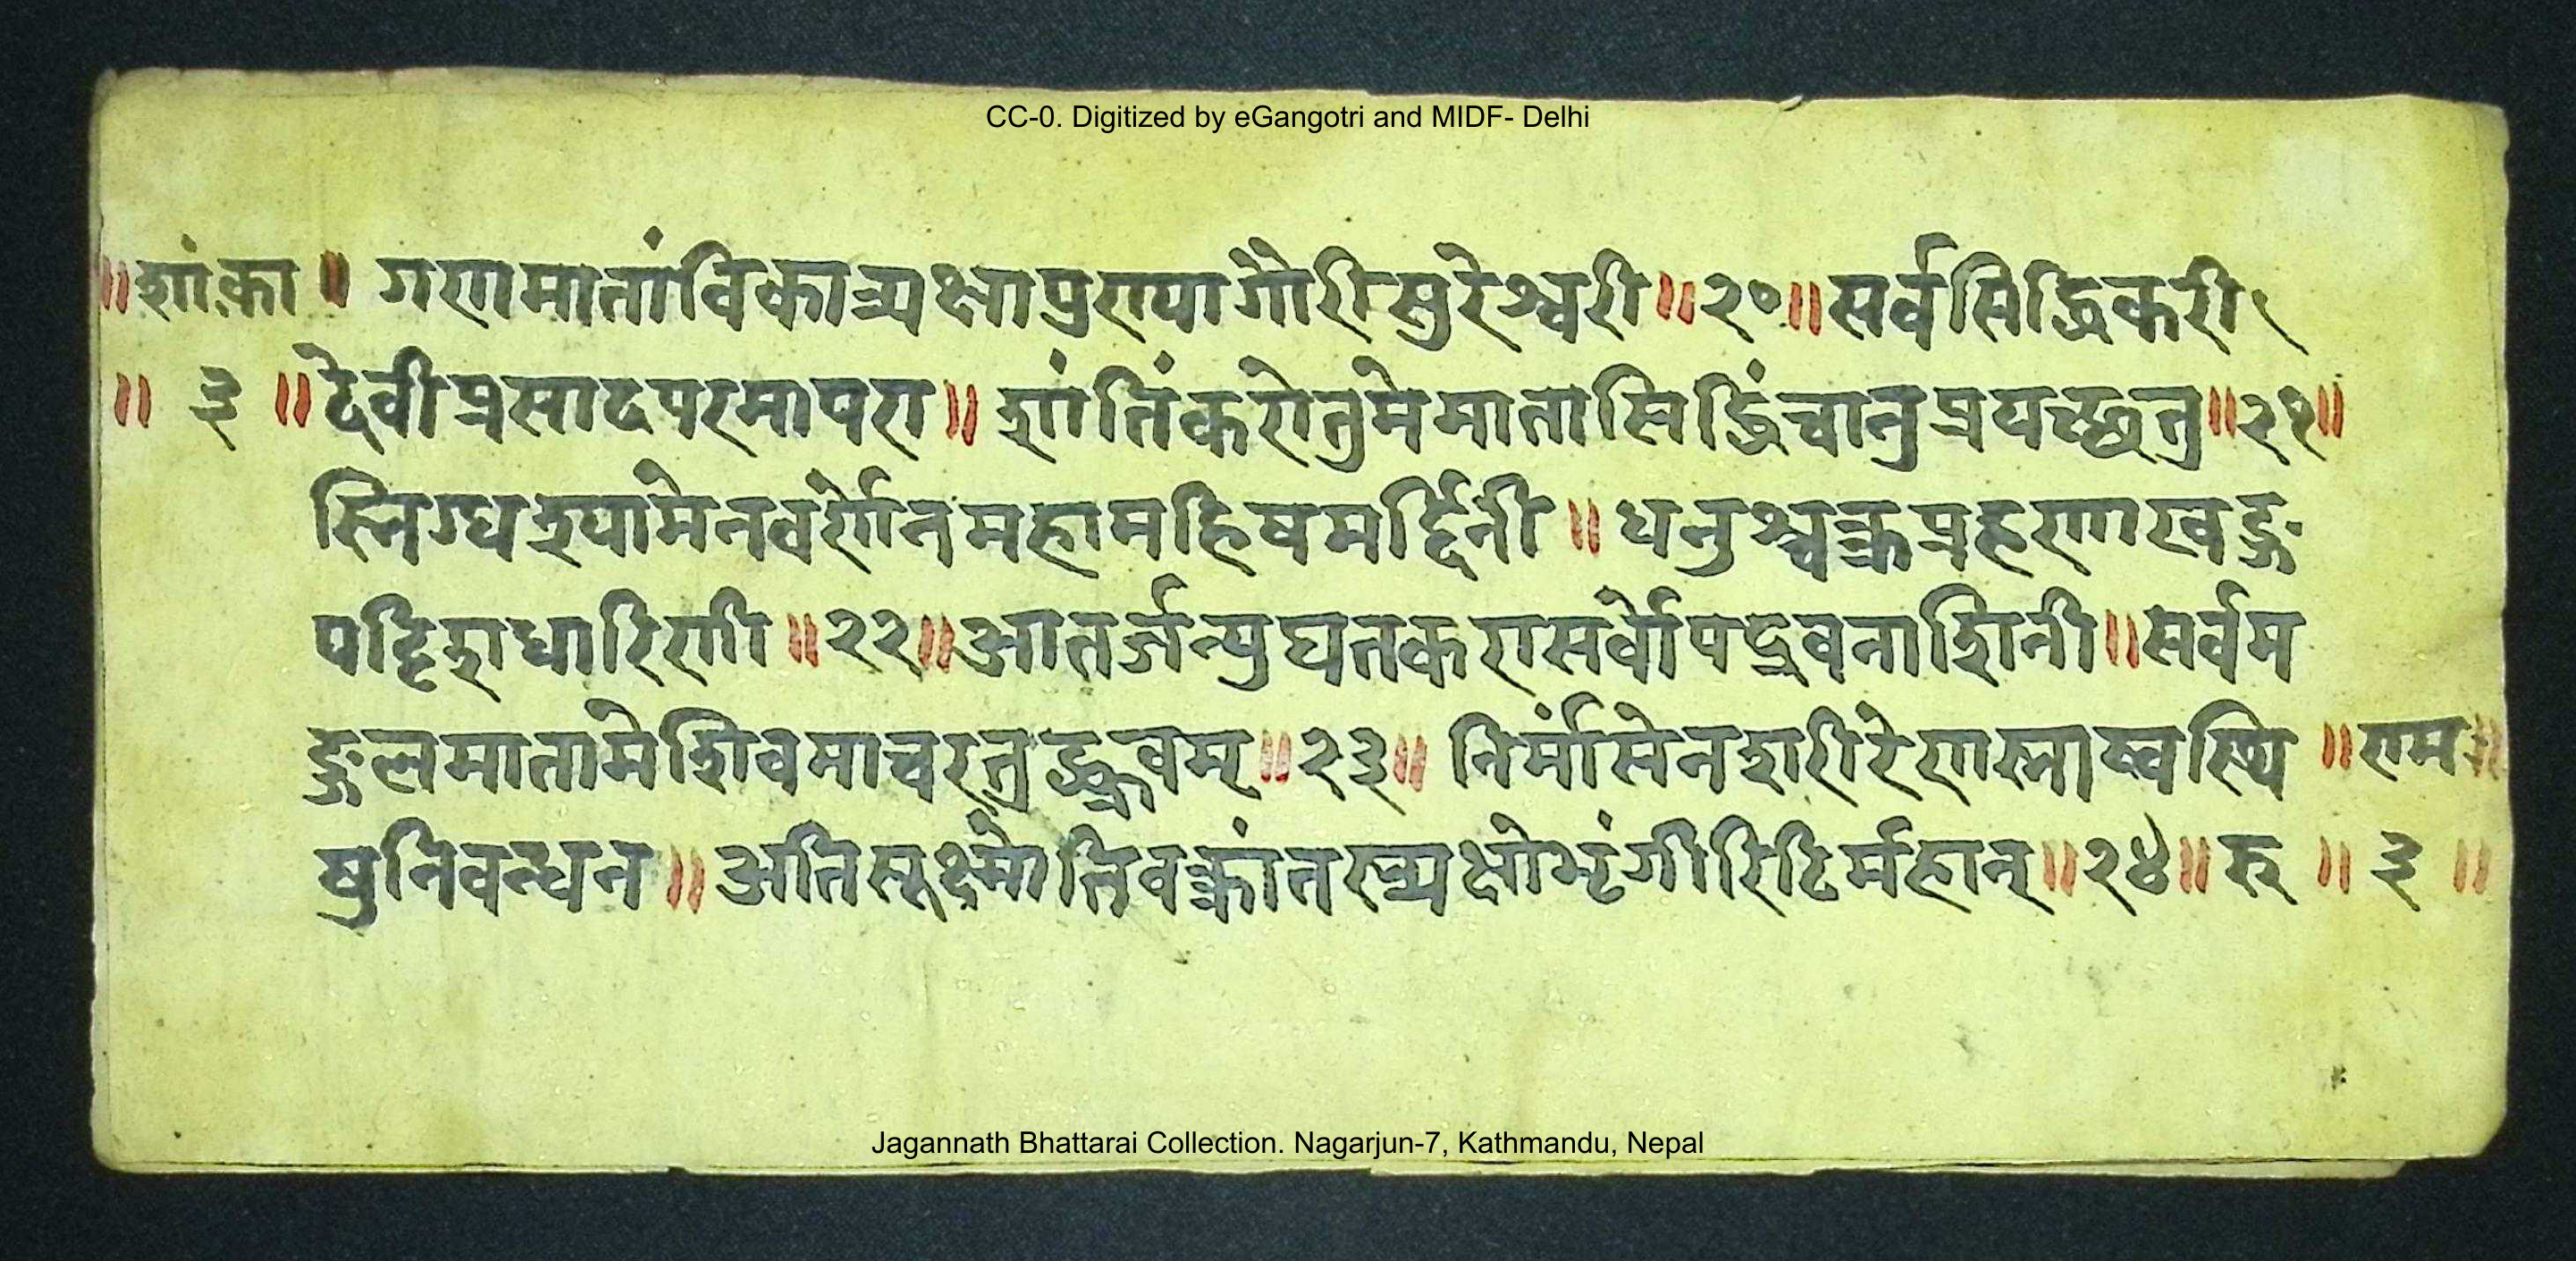 CC-0. Digitized by eGangotri and MIDF- Delhi
॥शां.का॥ गणमातांविकात्र्यक्षाप्रणयागौरीसुरेश्वरी॥२०॥सर्वसिद्धिकरी
॥ ३ ॥ देवीप्रसादपरमापरा॥ शांतिंकरोतुमेमातासिद्धिंचानुप्रयच्छतु॥२१॥
स्निग्धश्यामेनवर्णेनमहामहिषमर्द्दिनी॥धनुश्चक्रप्रहरणाखड्ग
पट्टिशधारिणी॥२२॥आतर्जन्युद्यतकरासर्वोपद्रवनाशिनी॥सर्वम
ङ्गलमातामेशिवमाचरतुद्ध्रुवम्॥२३॥ निर्मांसेनशरीरेणस्नाय्वस्थि ॥राम॥
षुनिवन्धन॥अतिसूक्ष्मोतिवक्रांतस्त्र्यक्षोभृंगीरिटिर्महान्॥२४॥रु ॥ ३ ॥
Jagannath Bhattarai Collection. Nagarjun-7, Kathmandu, Nepal